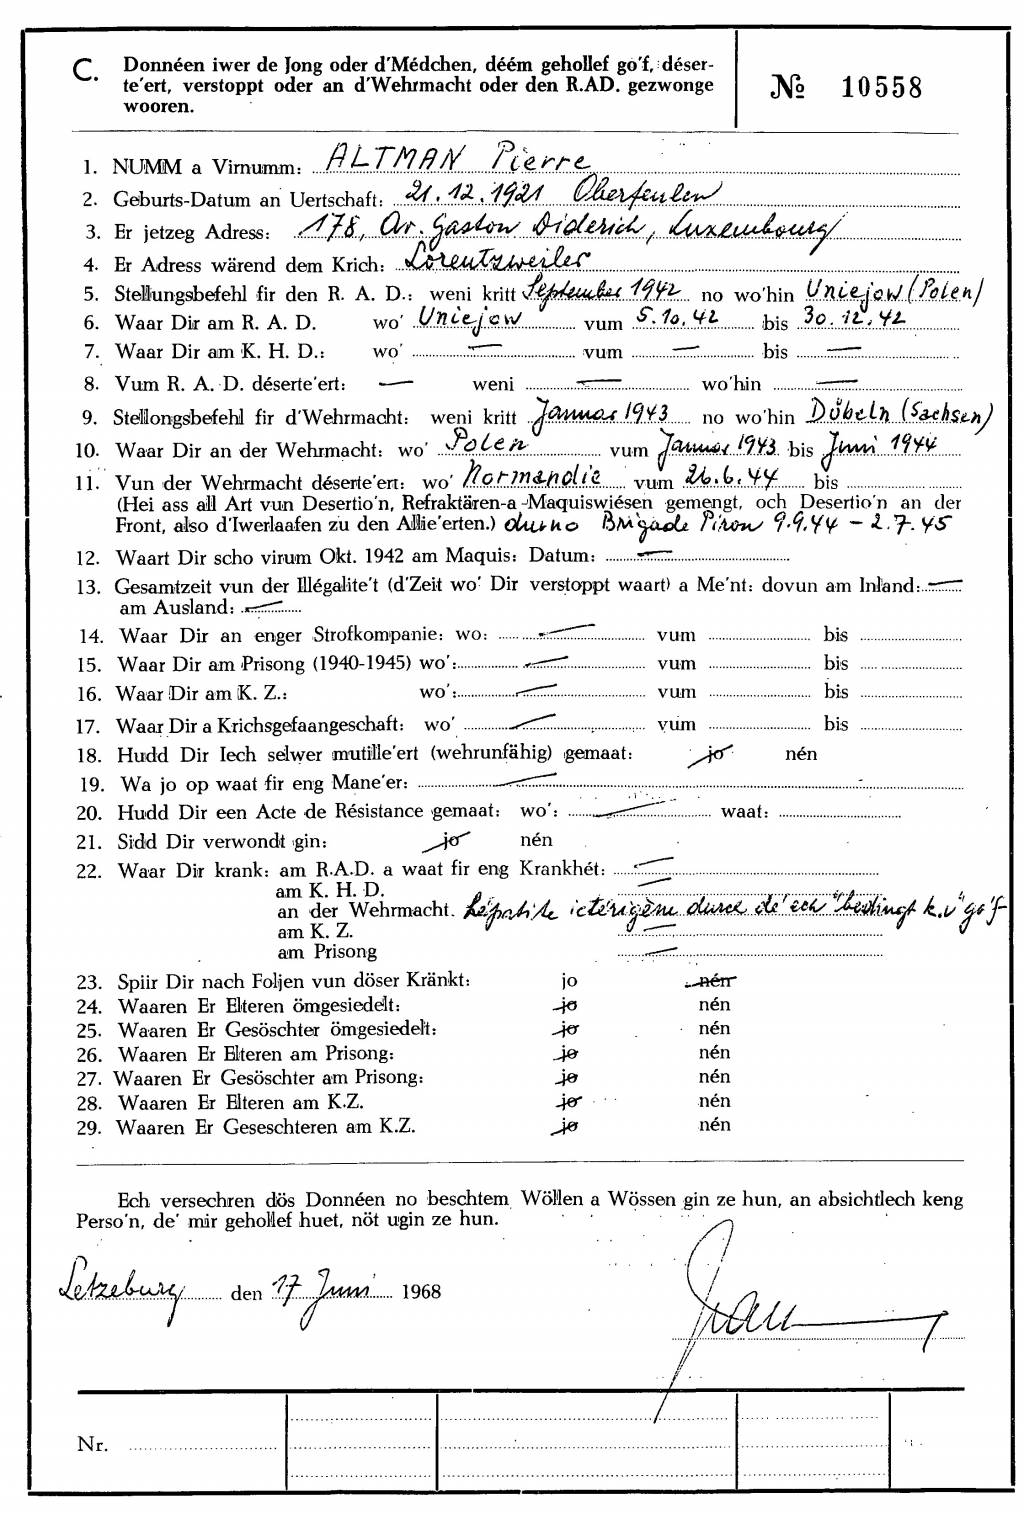 C. Donnéen iwer de Jong oder d'Médchen, déém gehollef gó'f, déser-
te'ert, verstoppt oder an d'Wehrmacht oder den R.AD. gezwonge
wooren.
№ 10558
1. NUMM a Virnumm: ALTMAN Pierre
2. Geburts-Datum an Uertschaft: 21.12.1921 Oberfeulen
3. Er jetzeg Adress: 178, Av. Gaston Diderich, Luxembourg
4. Er Adress wärend dem Krich: Lorentzweiler
5. Stellungsbefehl fir den R. A. D.: weni kritt September 1942 no wo'hin Uniejow (Polen)
6. Waar Dir am R. A. D. wo' Uniejow vum 5.10.42 bis 30.12.42
7. Waar Dir am K. H. D.: wo' — vum — bis —
8. Vum R. A. D. déserte'ert: — weni — wo'hin —
9. Stellongsbefehl fir d'Wehrmacht: weni kritt Januar 1943 no wo'hin Döbeln (Sachsen)
10. Waar Dir an der Wehrmacht: wo' Polen vum Januar 1943 bis Juni 1944
11. Vun der Wehrmacht déserte'ert: wo' Normandie vum 26.6.44 bis
(Hei ass all Art vun Desertio'n, Refraktären-a -Maquiswiésen gemengt, och Desertio'n an der
Front, also d'Iwerlaafen zu den Allie'erten.) durno Brigade Piron 9.9.44 – 2.7.45
12. Waart Dir scho virum Okt. 1942 am Maquis: Datum: —
13. Gesamtzeit vun der Illégalite't (d'Zeit wo' Dir verstoppt waart) a Me'nt: dovun am Inland: —
am Ausland: —
14. Waar Dir an enger Strofkompanie: wo: — vum bis
15. Waar Dir am Prisong (1940-1945) wo': — vum bis
16. Waar Dir am K. Z.: wo': — vum bis
17. Waar Dir a Krichsgefaangeschaft: wo' — vum bis
18. Hudd Dir Iech selwer mutille'ert (wehrunfähig) gemaat: jo nén
19. Wa jo op waat fir eng Mane'er: —
20. Hudd Dir een Acte de Résistance gemaat: wo': — waat:
21. Sidd Dir verwondt gin: jo nén
22. Waar Dir krank: am R.A.D. a waat fir eng Krankhét: —
am K. H. D. —
an der Wehrmacht. hépatite ictérigène durch dé ech "bedingt k.v" go'f
am K. Z. —
am Prisong —
23. Spiir Dir nach Foljen vun döser Kränkt: jo nén
24. Waaren Er Elteren ömgesiedelt: jo nén
25. Waaren Er Gesöschter ömgesiedelt: jo nén
26. Waaren Er Elteren am Prisong: jo nén
27. Waaren Er Gesöschter am Prisong: jo nén
28. Waaren Er Elteren am K.Z. jo nén
29. Waaren Er Geseschteren am K.Z. jo nén
Ech versechren dös Donnéen no beschtem Wöllen a Wössen gin ze hun, an absichtlech keng
Perso'n, de' mir gehollef huet, nöt ugin ze hun.
Letzeburg den 17 Juni 1968
Nr.